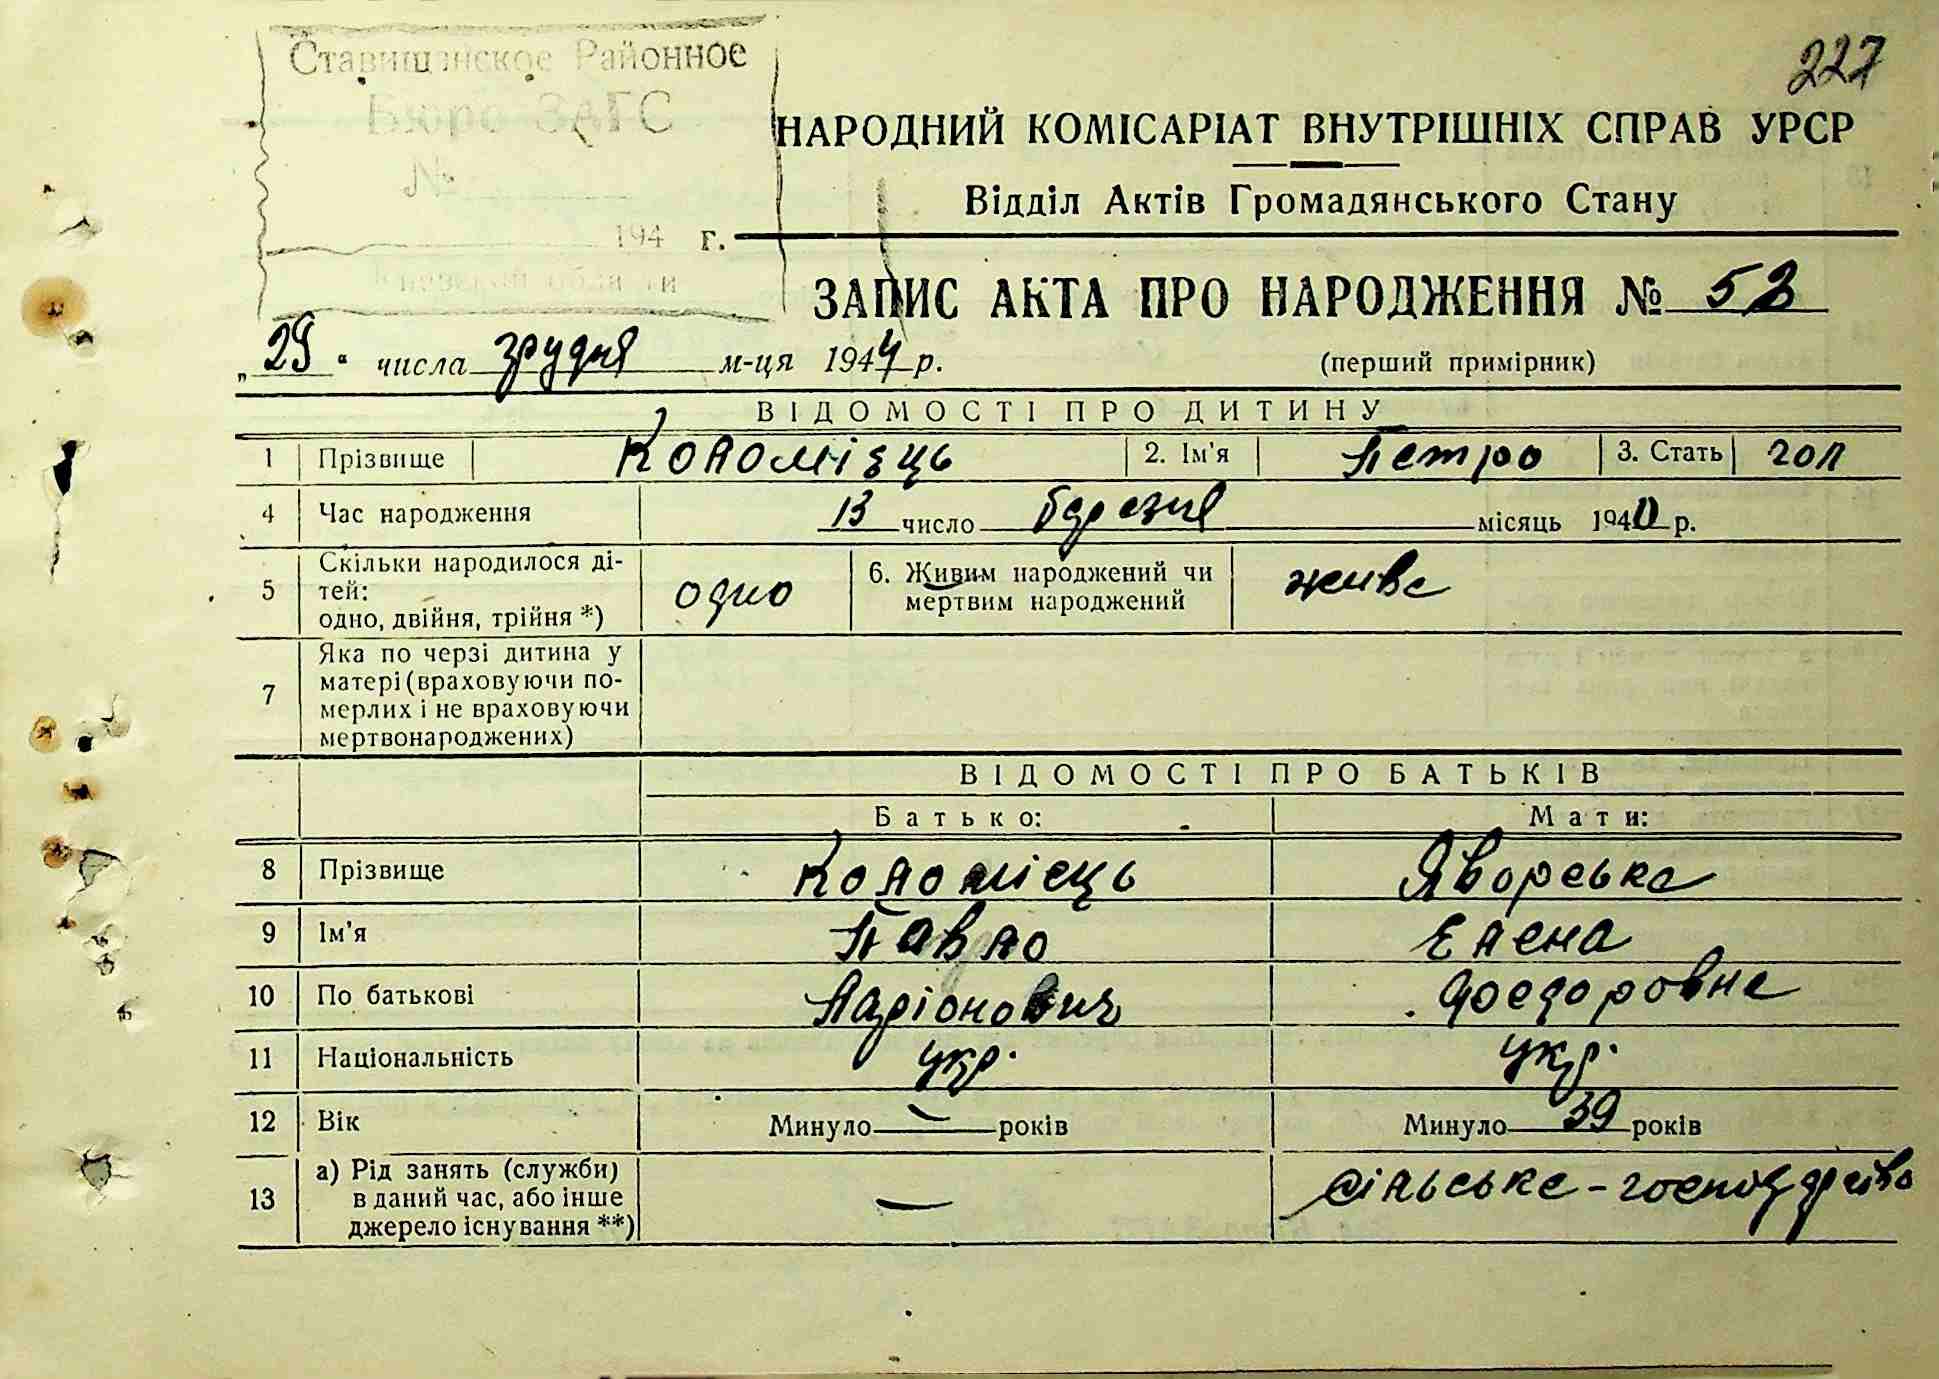 227
Ставищанское Районное
Бюро ЗАГС
№
194 г.
Киевской области
НАРОДНИЙ КОМІСАРІАТ ВНУТРІШНІХ СПРАВ УРСР
Відділ Актів Громадянського Стану
ЗАПИС АКТА ПРО НАРОДЖЕННЯ № 52
„29“ числа грудня м-ця 1944 р.
(перший примірник)
ВІДОМОСТІ ПРО ДИТИНУ
1 Прізвище Коломієць 2. Ім'я Петро 3. Стать чол
4 Час народження 13 число березня місяць 1940 р.
5 Скільки народилося ді-
тей:
одно, двійня, трійня *) одно 6. Живим народжений чи
мертвим народжений живе
7 Яка по черзі дитина у
матері (враховуючи по-
мерлих і не враховуючи
мертвонароджених)
ВІДОМОСТІ ПРО БАТЬКІВ
Батько: Мати:
8 Прізвище Коломієць Яворська
9 Ім'я Павло Елена
10 По батькові Ларіонович Федоровна
11 Національність укр. укр.
12 Вік Минуло — років Минуло 39 років
13 а) Рід занять (служби)
в даний час, або інше
джерело існування **) — сільське-господарство